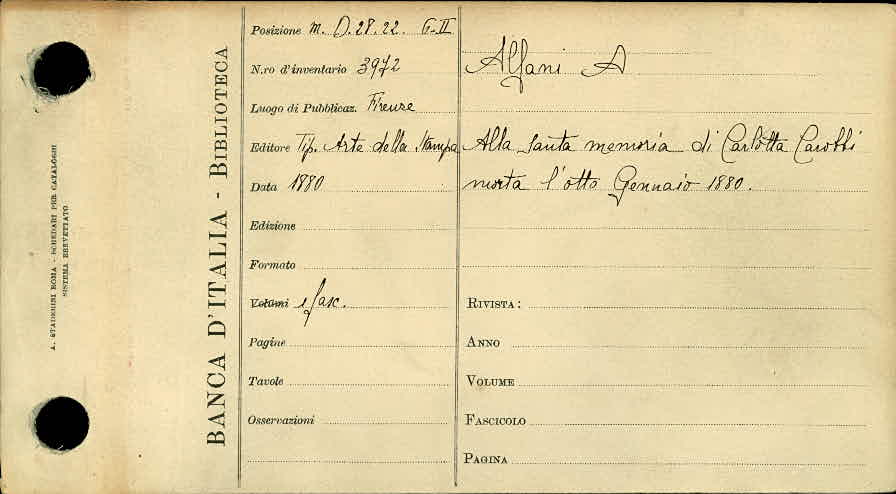 A. STADERINI ROMA - SCHEDARI PER CATALOGHI
SISTEMA BREVETTATO
BANCA D'ITALIA - BIBLIOTECA
Posizione M. D. 28. 22 G-II
N.ro d'inventario 3972
Luogo di Pubblicaz. Firenze
Editore Tip. Arte della Stampa
Data 1880
Edizione
Formato
Volumi 1 fasc.
Pagine
Tavole
Osservazioni
Alfani A
Alla santa memoria di Carlotta
morta l'otto Gennaio 1880.
RIVISTA:
ANNO
VOLUME
FASCICOLO
PAGINA